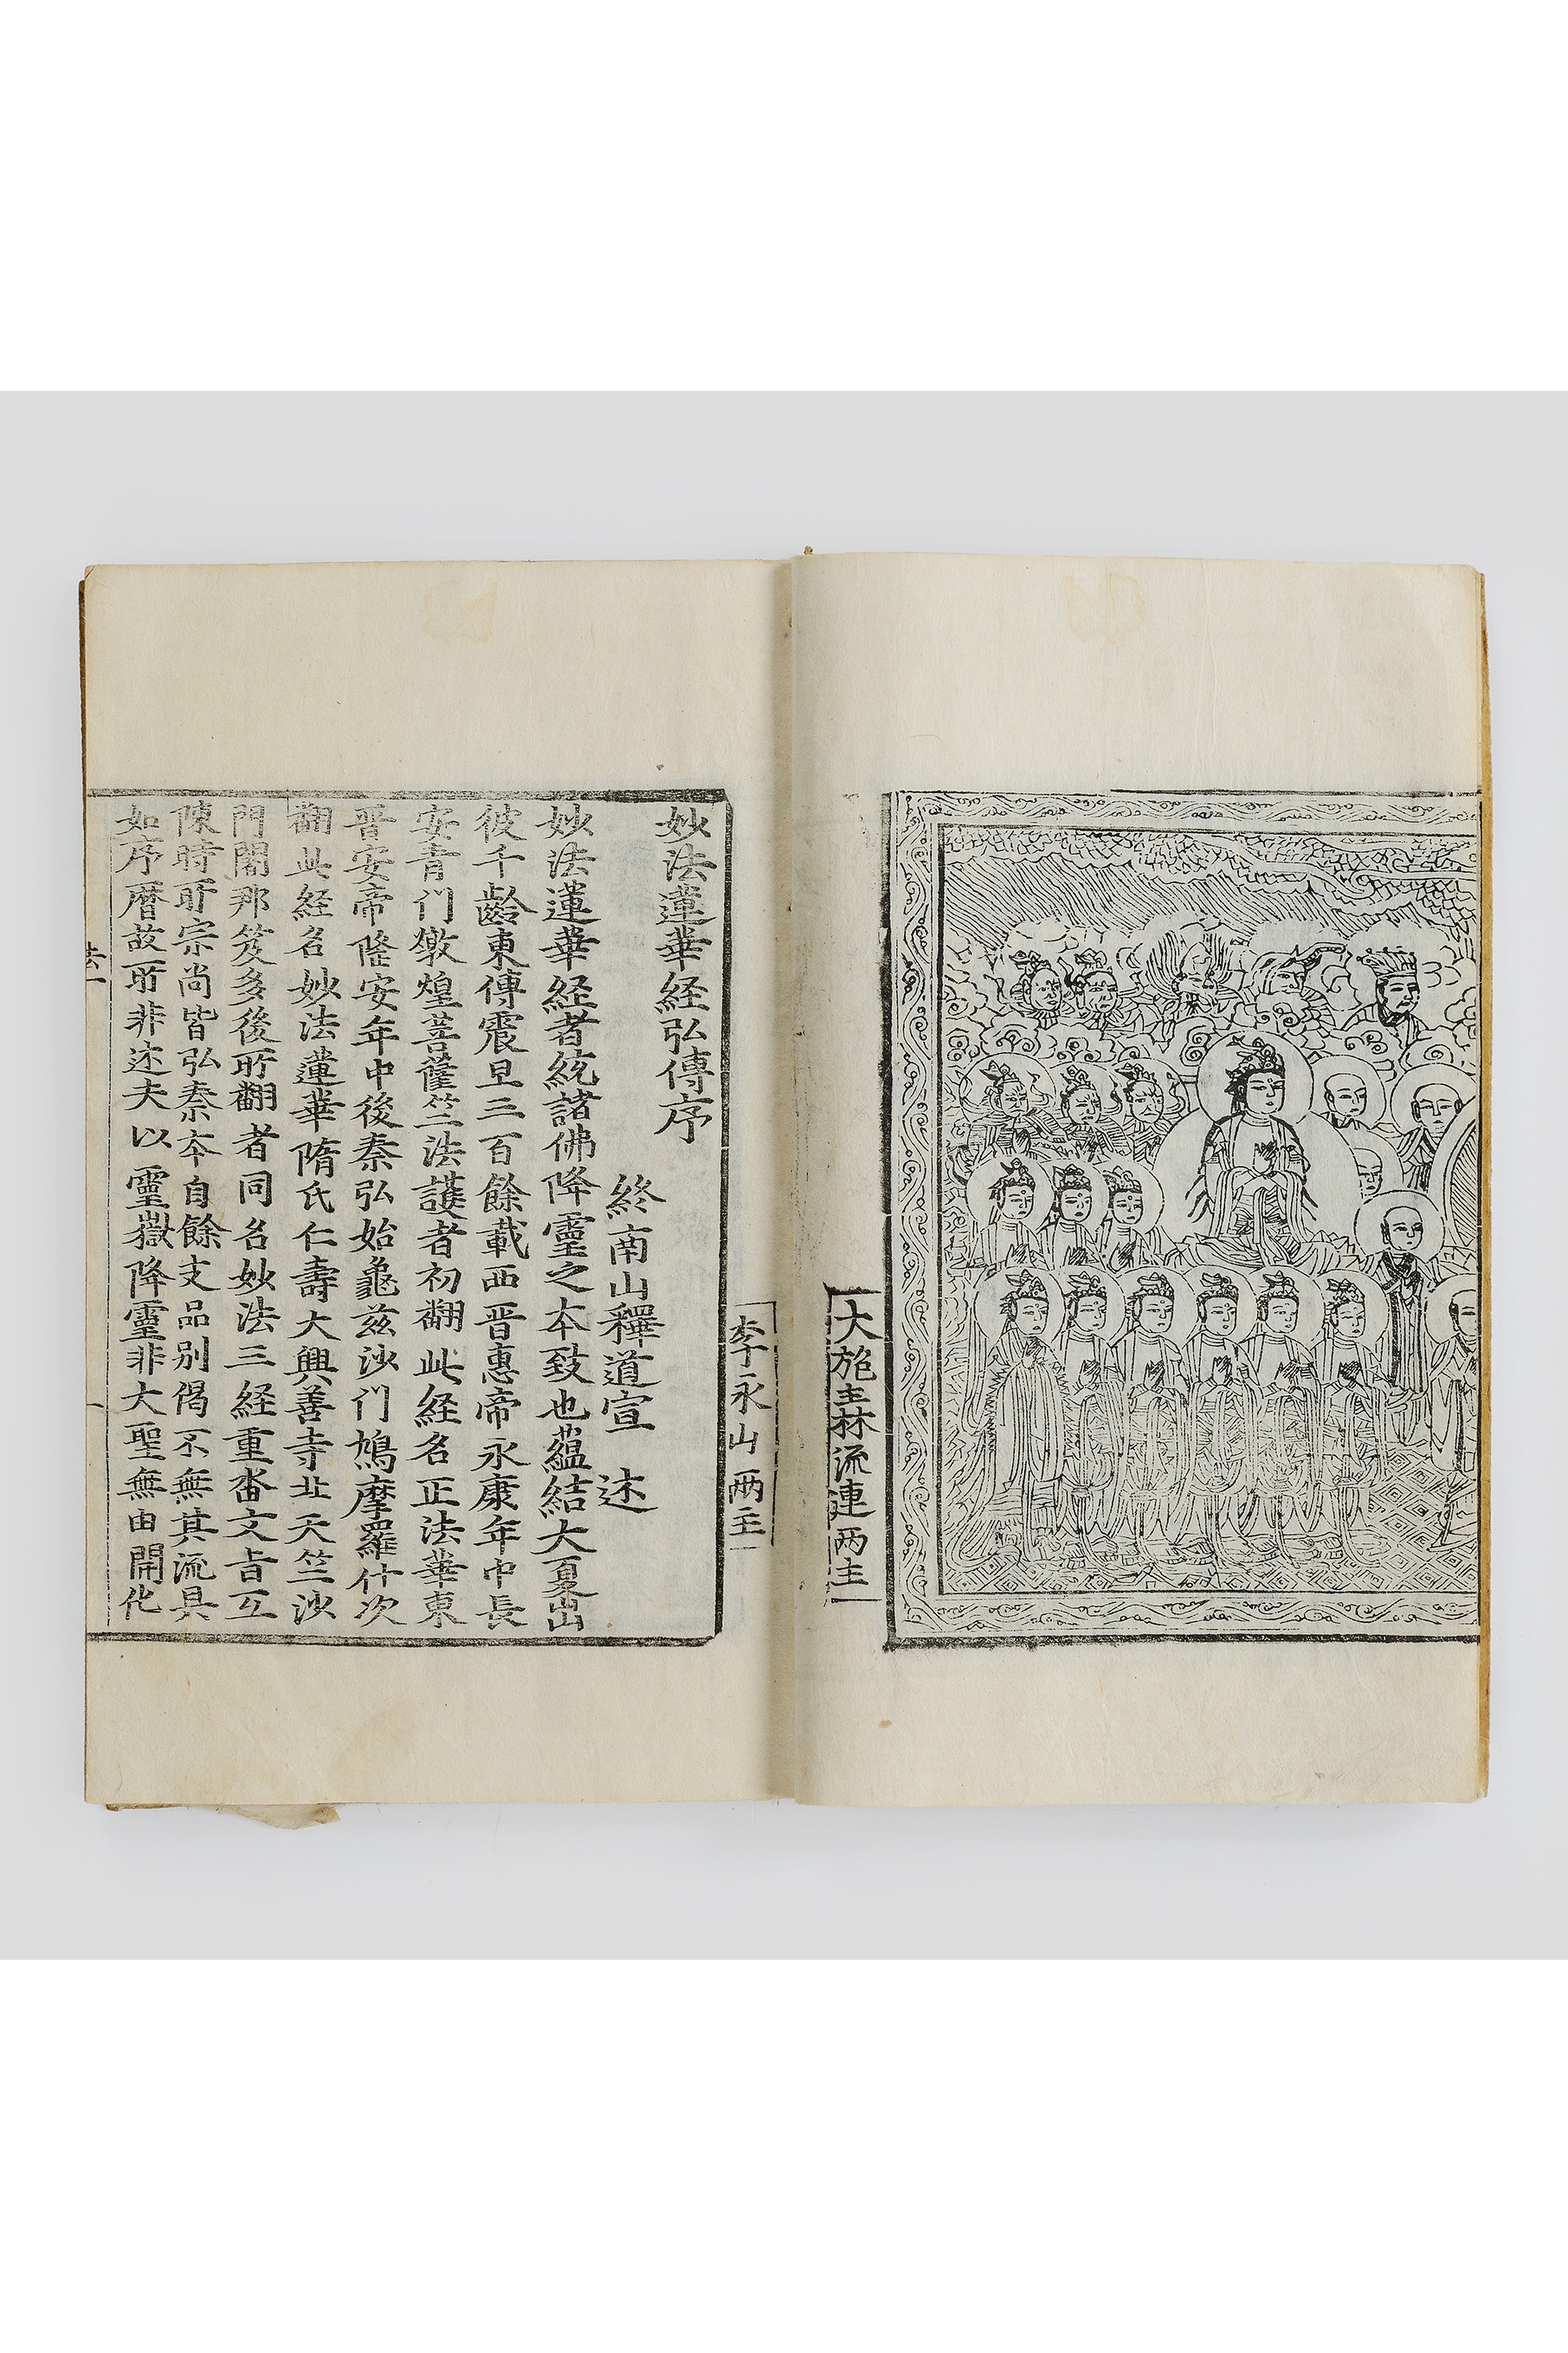 大施主林流連兩主
李永山兩主
妙法蓮華経弘傳序
終南山釋道宣 述
妙法蓮華経者統諸佛降靈之本致也蘊結大夏出
彼千齡東傳震旦三百餘載西晋惠帝永康年中長
安青门燉煌菩薩竺法護者初翻此経名正法華東
晋安帝隆安年中後秦弘始龜兹沙门鳩摩羅什次
翻此経名妙法蓮華隋氏仁壽大興善寺北天竺沙
門闍那笈多後所翻者同名妙法三経重沓文旨互
陳時所宗尚皆弘秦本自餘支品別偈不無其流具
如序曆故所非述夫以靈嶽降靈非大聖無由開化
法一
一